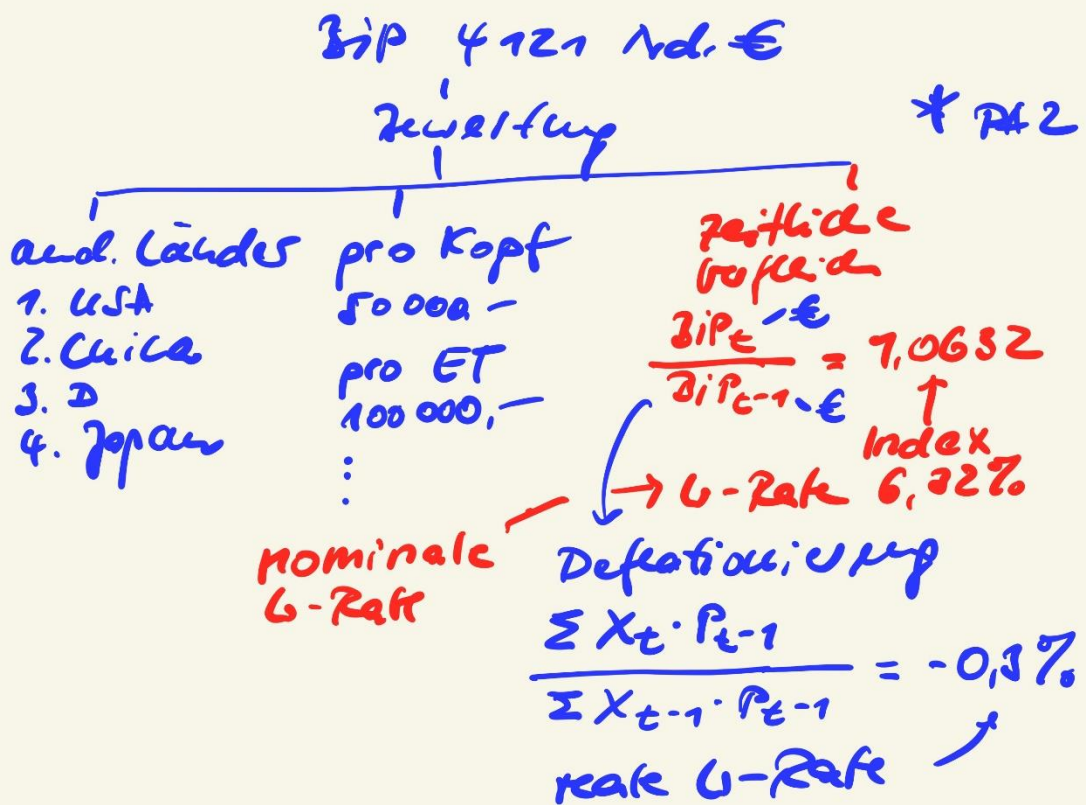 BiP 4121 Mrd. €
* PA2
and. Länder
1. USA
2. China
3. D
4. Japan
pro Kopf
50 000,-
pro ET
100 000,-
⋮
zeitliche
Vergleich
BiPt - €
BiPt-1 - €
= 1,0632
↑
Index
→ W-Rate 6,32%
nominale
W-Rate
Deflationierung
Σ Xt · Pt-1
Σ Xt-1 · Pt-1
= -0,3%
reale W-Rate